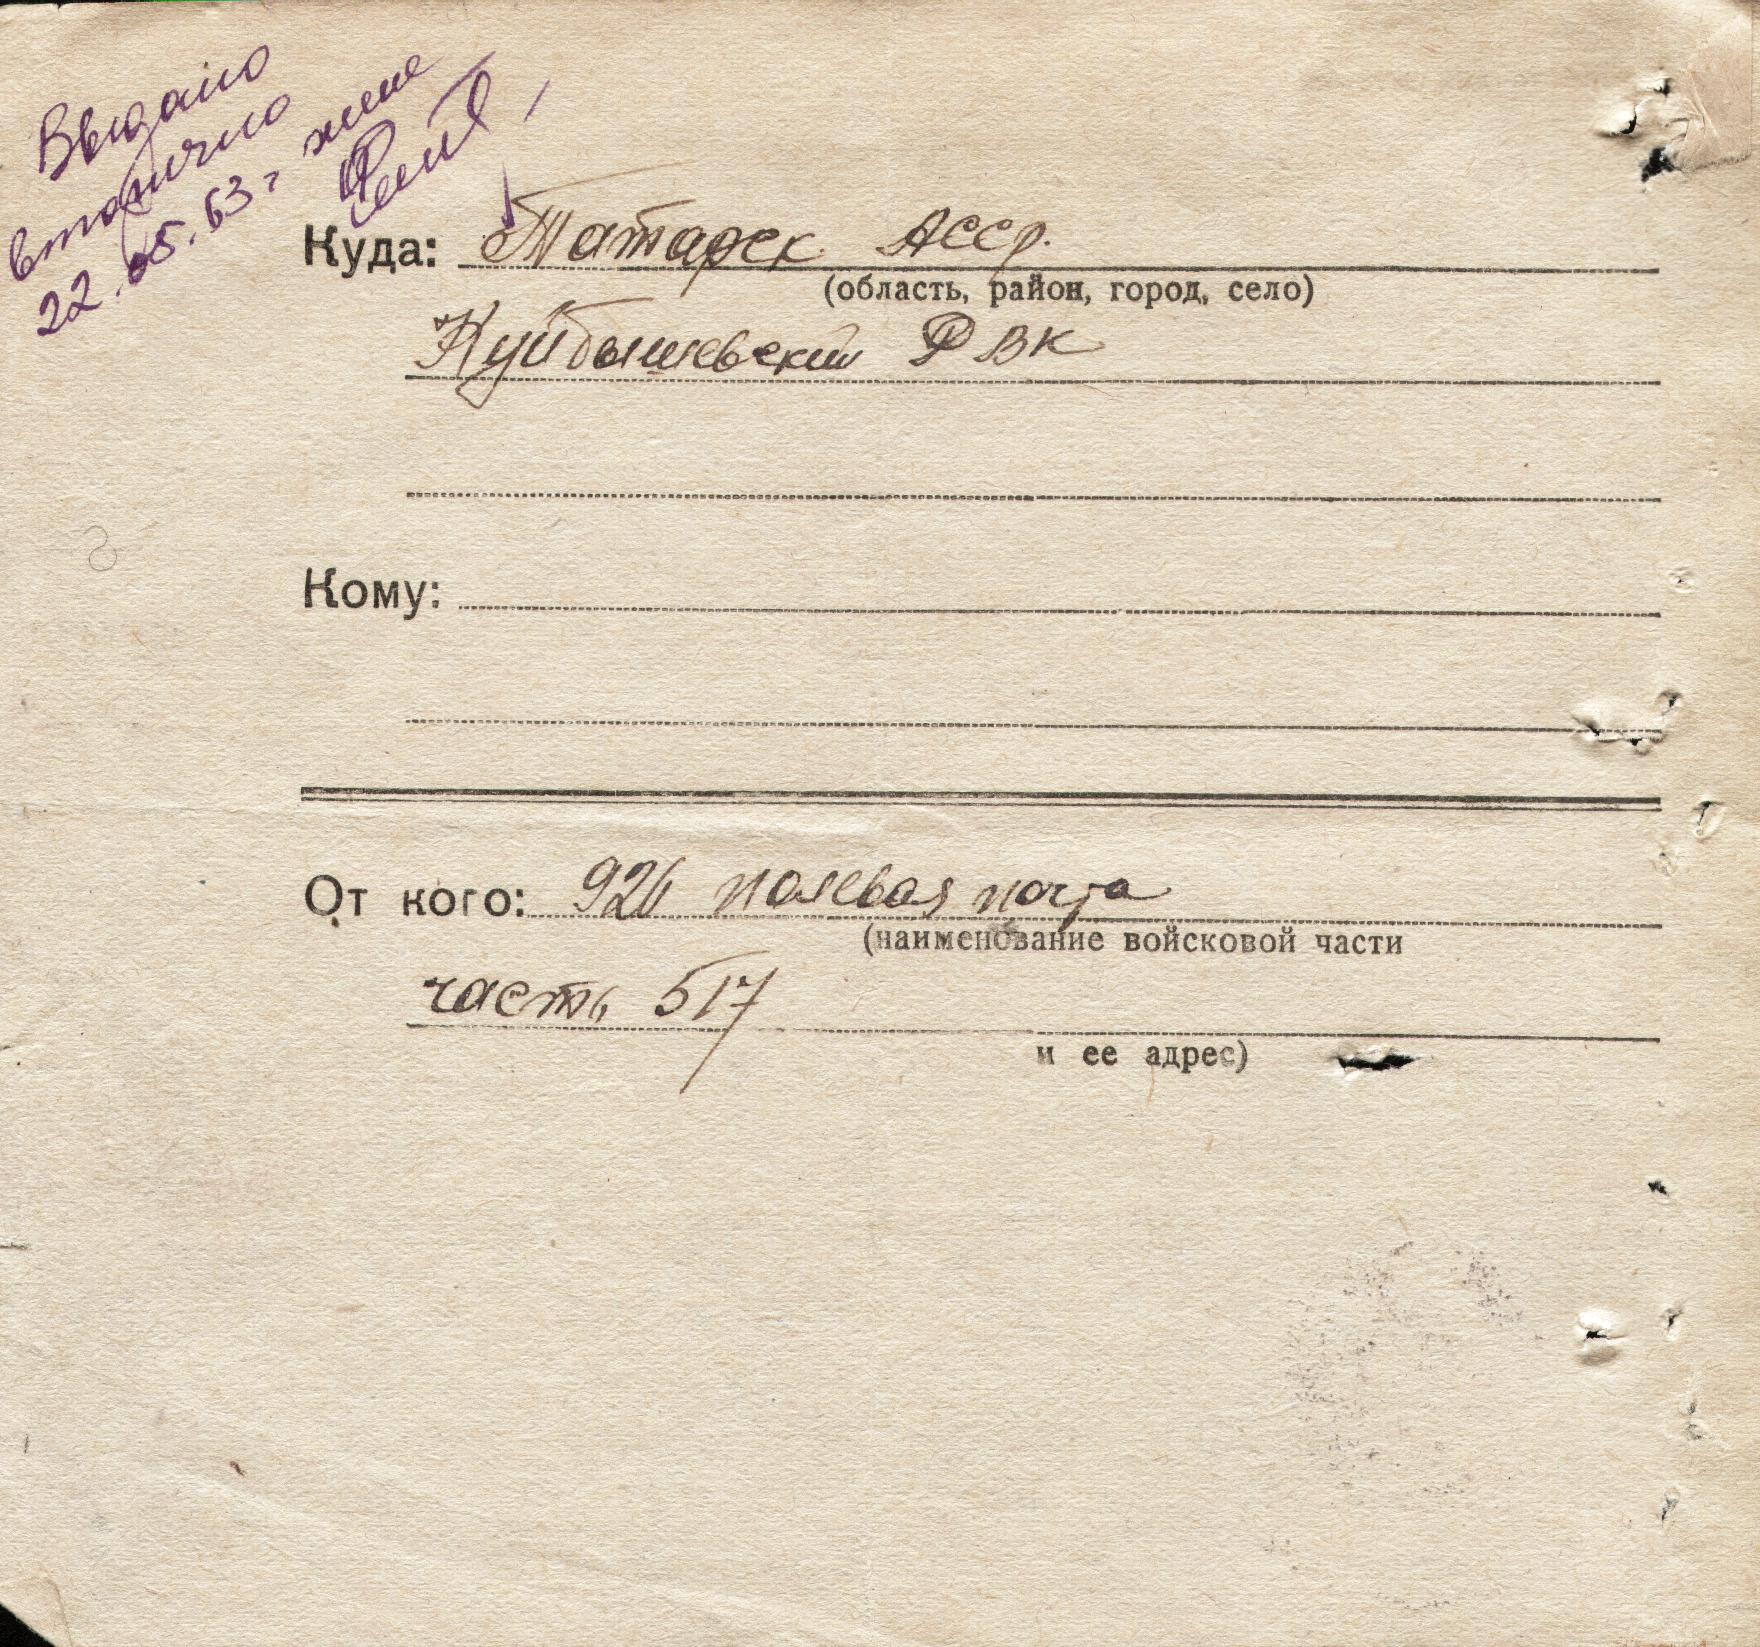 Выдано
вторично
22.05.63 г жене
Куда: Татарск АССР.
(область, район, город, село)
Куйбышевский РВК
Кому:
От кого: 926 полевая почта
(наименование войсковой части
часть 517
и ее адрес)